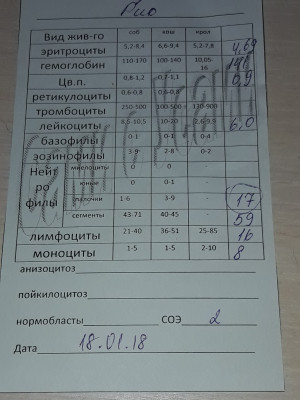 Рио
Вид жив-го соб кош крол
эритроциты 5,2-8,4 6,6-9,4 5,2-7,8 4,69
гемоглобин 110-170 100-140 10,05-16 141
Цв.п. 0,8-1,2 0,7-1,1 0,9
ретикулоциты 0,6-0,8 0,6-0,8
тромбоциты 250-500 100-500 110-900
лейкоциты 8,5-10,5 10-20 2,6-9,9 6,0
базофилы 0-1 0-1 0-4
эозинофилы 3-9 2-8 0-2
Нейтрофилы миелоциты 0 0 -
юные - 0 0-1 -
палочки 1-6 3-9 - 17
сегменты 43-71 40-45 - 59
лимфоциты 21-40 36-51 25-85 16
моноциты 1-5 1-5 2-10 8
анизоцитоз
пойкилоцитоз
нормобласты СОЭ 2
Дата 18.01.18